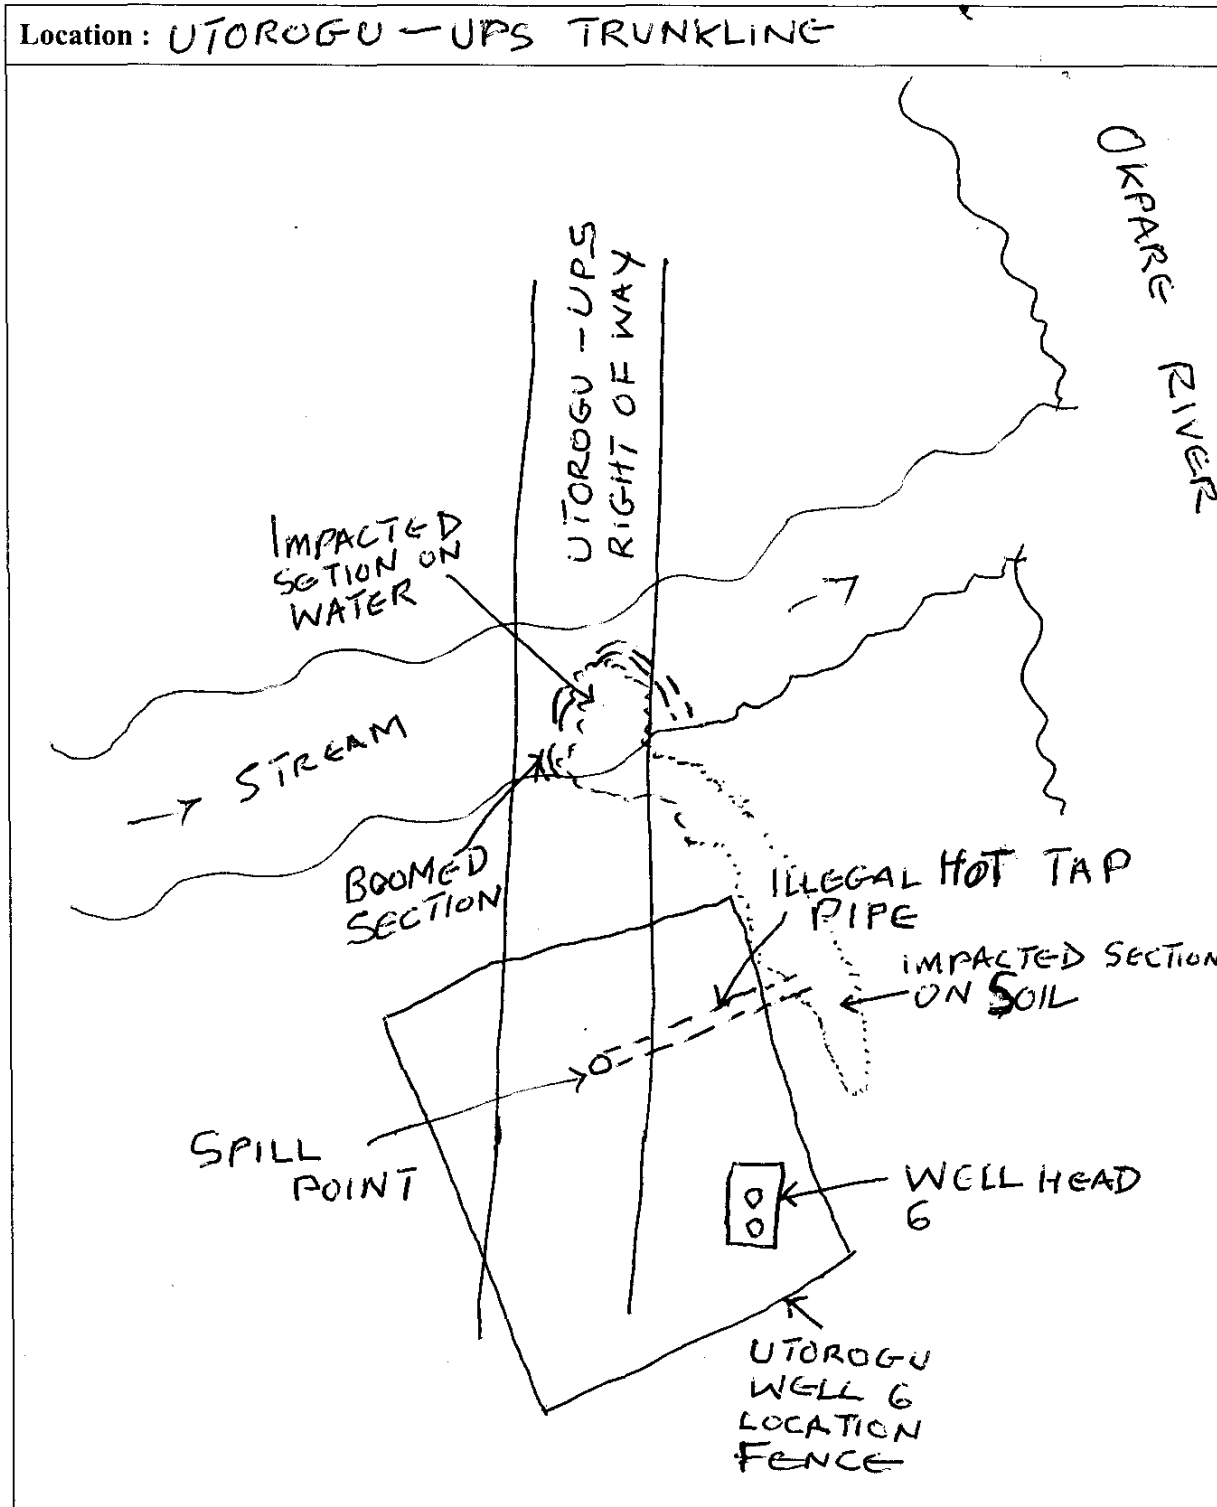 Location : UTOROGU - UPS TRUNKLINE
OKPARE RIVER
UTOROGU - UPS
RIGHT OF WAY
IMPACTED
SETION ON
WATER
STREAM
BOOMED
SECTION
ILLEGAL HOT TAP
PIPE
IMPACTED SECTION
ON SOIL
SPILL
POINT
WELL HEAD
6
UTOROGU
WELL 6
LOCATION
FENCE